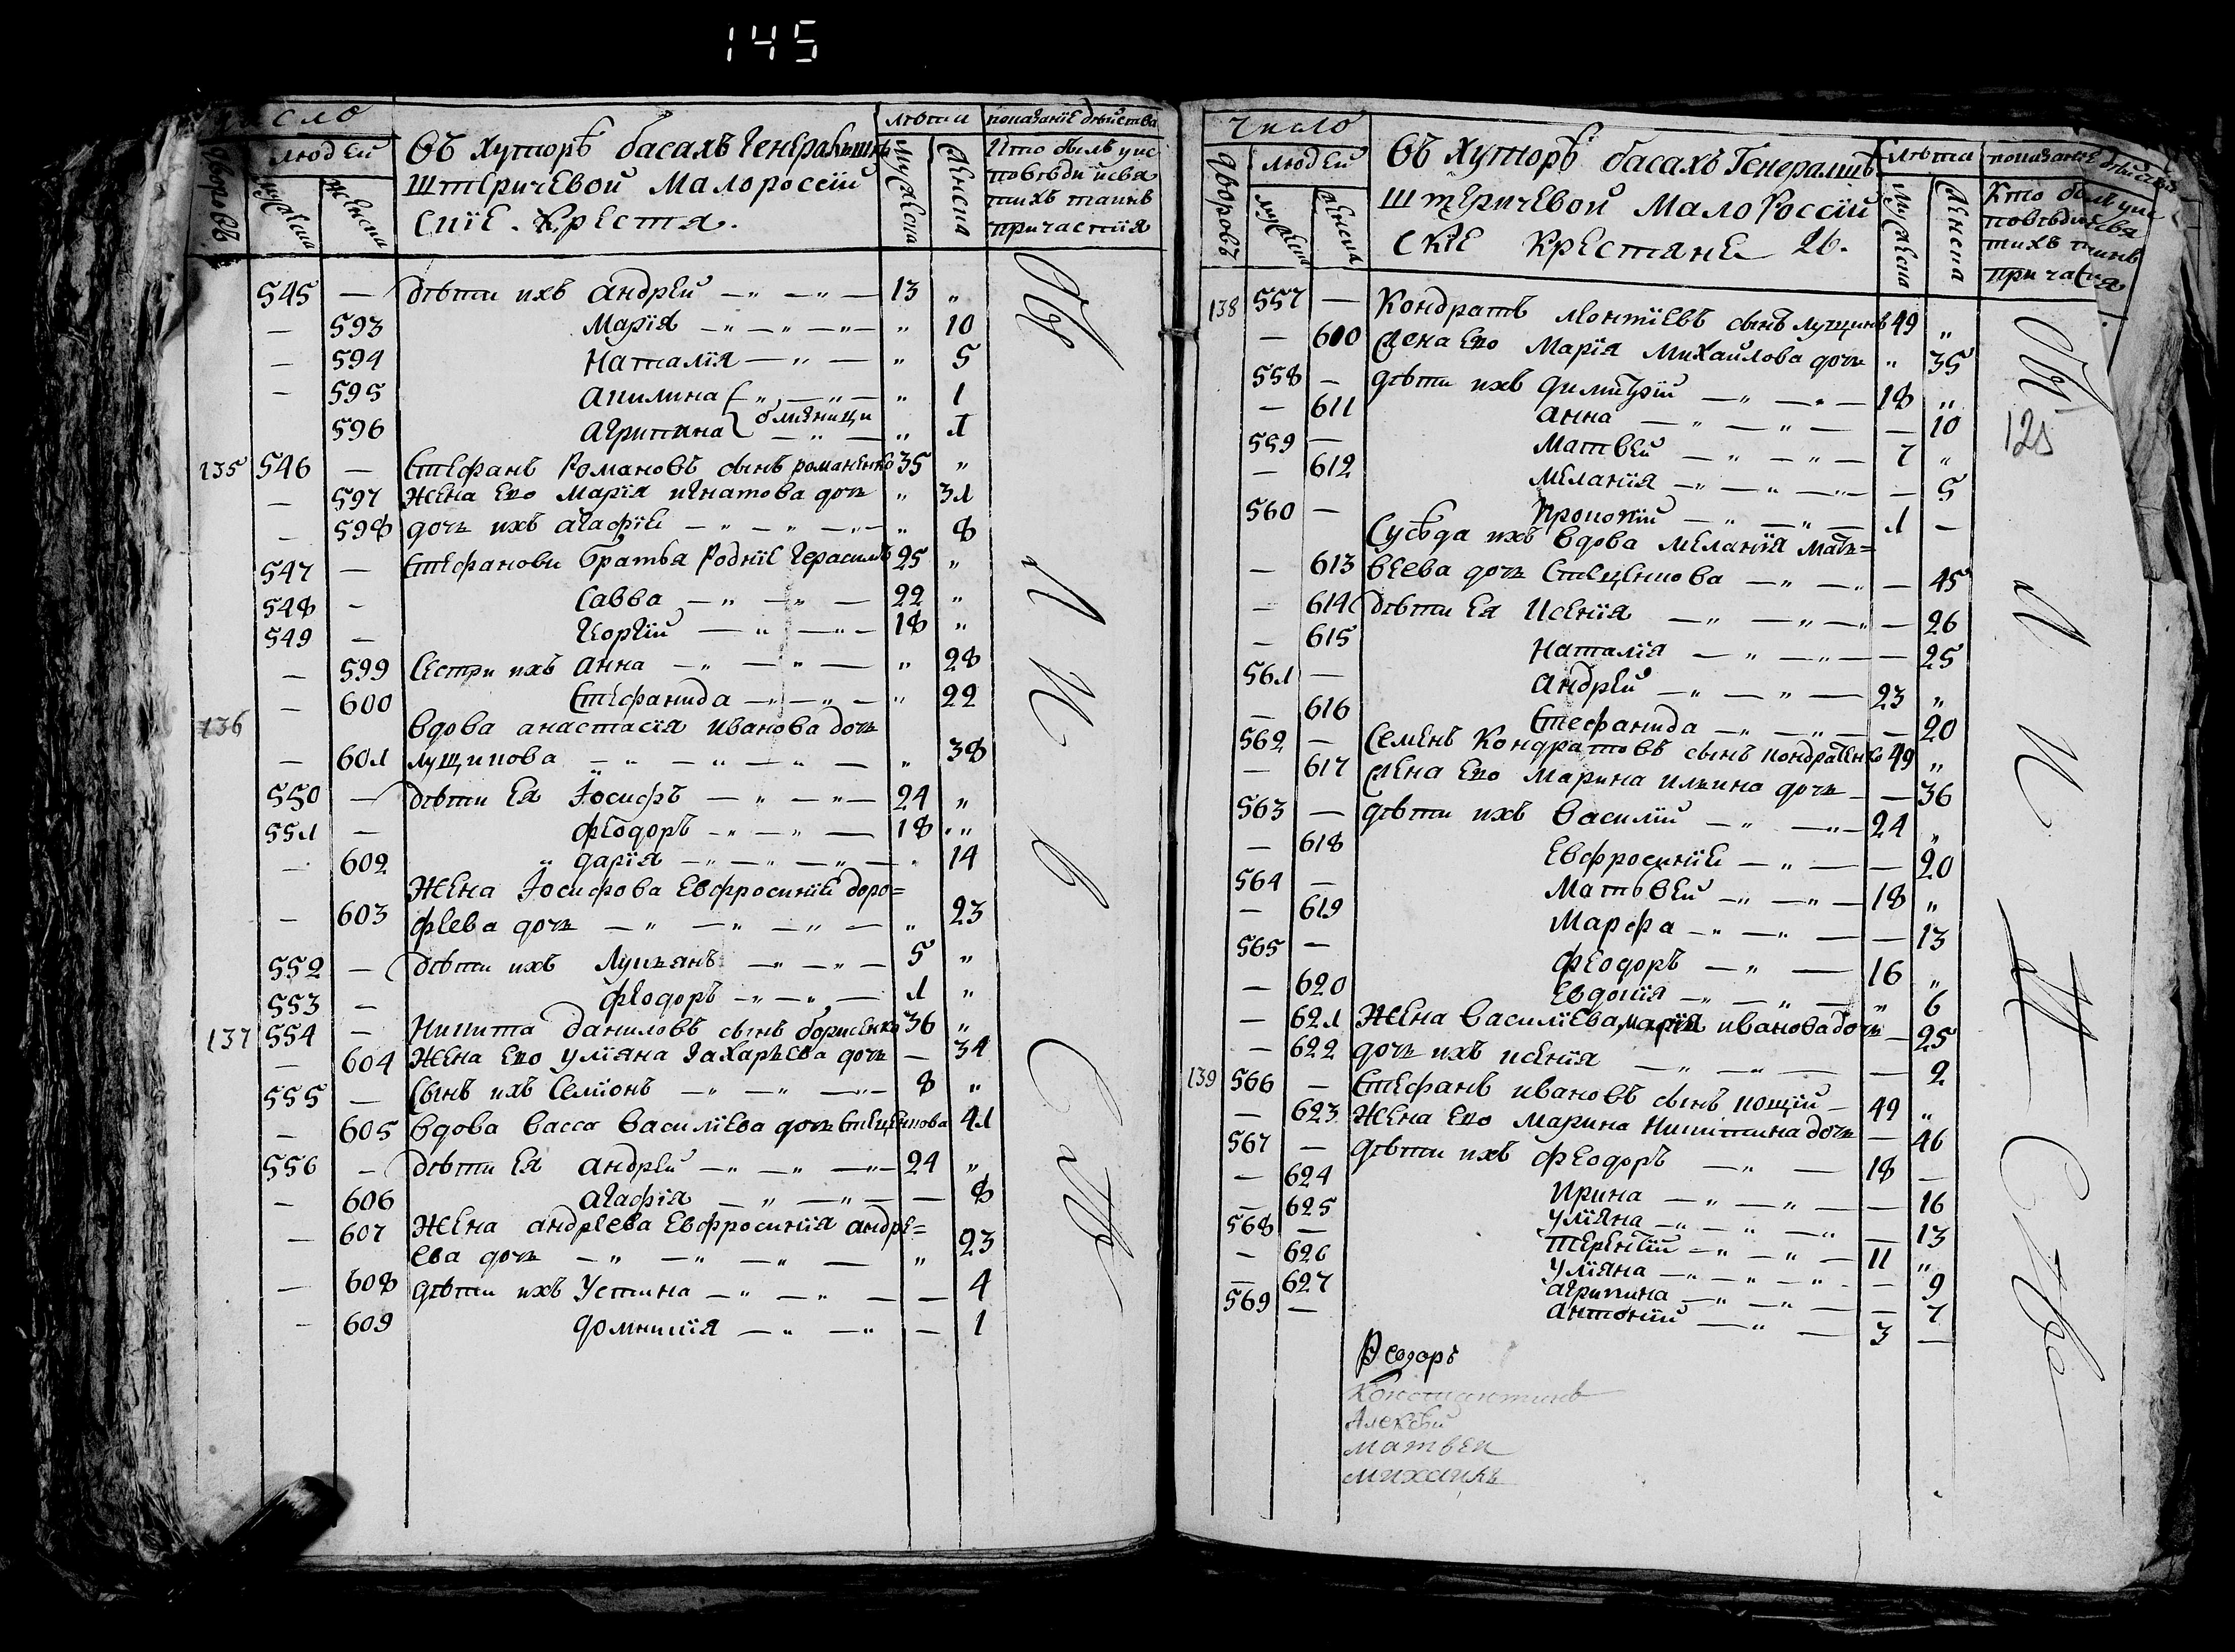 145
число
людей
дворовъ
мужеска
женска
Въ Хуторѣ басахъ Генералшѣ
Штеричевой Малороссій
скіе. Креста.
лѣти
мужеска
женска
показаніе дѣйства
Кто былъ у ис
повѣди и свя
тихъ таинъ
причастія
545 — дѣти ихъ андрей — „ — „ — 13 „
— 593 Марія — „ — „ — „ — „ 10
— 594 Наталія — „ — „ 5
— 595 акилина — „ — „ — „ 1
близници
596 агрипина — „ — „ 1
135 546 — Стефанъ Романовъ сынъ романенко 35 „
— 597 Жена Его Марія игнатова дочь „ 31
— 598 дочь ихъ агафіе — „ — „ — „ — „ 8
547 — Стефанови братья Родніе Герасимъ 25 „
548 — Савва — „ — „ — 22 „
549 — Георгій — „ — „ — 18 „
— 599 Сестри ихъ анна — „ — „ — „ 28
— 600 Стефанида — „ — „ — „ 22
136 вдова анастасія иванова дочь
— 601 лущикова — „ — „ — „ — „ 38
550 — дѣти Ея Іосифъ — „ — „ — 24 „
551 — феодоръ — „ — „ — 18 „
— 602 „ дарія — „ — „ — „ — „ 14
Жена Іосифова Евфросиніе доро=
— 603 феева дочь — „ — „ — „ — „ 23
552 — дѣти ихъ Лукьянъ — „ — „ — 5 „
553 — феодоръ — „ — „ — 1 „
137 554 — Никита даниловъ сынъ борисенко 36 „
— 604 Жена Его уліяна Захарьева дочь — 34
555 — Сынъ ихъ Семіонъ — „ — „ — „ — 8 „
— 605 вдова васса василіева дочь Стеценкова 41
556 — дѣти Ея андрей — „ — „ — „ — 24 „
— 606 агафія — „ — „ — — 8
— 607 Жена андреева Евфросинія андре=
ева дочь — „ — „ — „ — „ 23
— 608 дѣти ихъ Устина — „ — „ — — 4
— 609 домникія — „ — „ — 1
число
людей
дворовъ
мужеска
женска
Въ Хуторѣ басахъ Генералшѣ
Штеричевой МалоРоссій
скіе Крестяне 26.
лѣта
мужеска
женска
показаніе дѣйства
Кто былъ у ис
повѣди и свя
тихъ таинъ
причастія
125
138 557 — Кондратъ леонтіевъ сынъ лущикъ 49 „
— 600 жена Его Марія Михайлова дочь „ 35
558 — дѣти ихъ димитрій — „ — „ — 18 „
— 611 анна — „ — „ — — 10
559 — Матвей — „ — „ — 7 „
— 612 Меланія — „ — „ — „ — — 5
560 — Прокопій — „ — „ — 1 —
Сусѣда ихъ вдова меланія матв=
— 613 веева дочь Стеценкова — „ — „ — 45
— 614 дѣти Ея Ксенія — „ — „ — „ — 26
— 615 Наталія — „ — „ — — 25
561 — андрей — „ — „ — 23 „
— 616 Стефанида — „ — „ — — 20
562 — Семенъ Кондратовъ сынъ кондратенко 49 „
— 617 жена Его марина илкина дочь — — 36
563 — дѣти ихъ Василій — „ — „ — 24 „
— 618 Евфросиніе — „ — — 20
564 — Матьвей — „ — „ — 18 „
— 619 Марфа — „ — „ — — 13
565 — феодоръ — „ — 16 „
— 620 Евдокія — „ — „ — „ 6
— 621 Жена василіева марія иванова дочь — 25
— 622 дочь ихъ ксенія — „ — „ — — 2
139 566 — Стефанъ ивановъ сынъ кощій — 49 „
— 623 Жена Его марина Никитина дочь — 46
567 — дѣти ихъ феодоръ — „ — 18 —
— 624 Ирина — „ — „ — — 16
— 625 уліяна — „ — „ — „ — 13
568 — терентій — „ — „ — 11 „
— 626 уліяна — „ — „ — „ — 9
— 627 агрипина — „ — „ — — 7
569 — антоній — „ — 3 —
Феодоръ
Константинъ
Алексѣй
матвеи
михаилъ